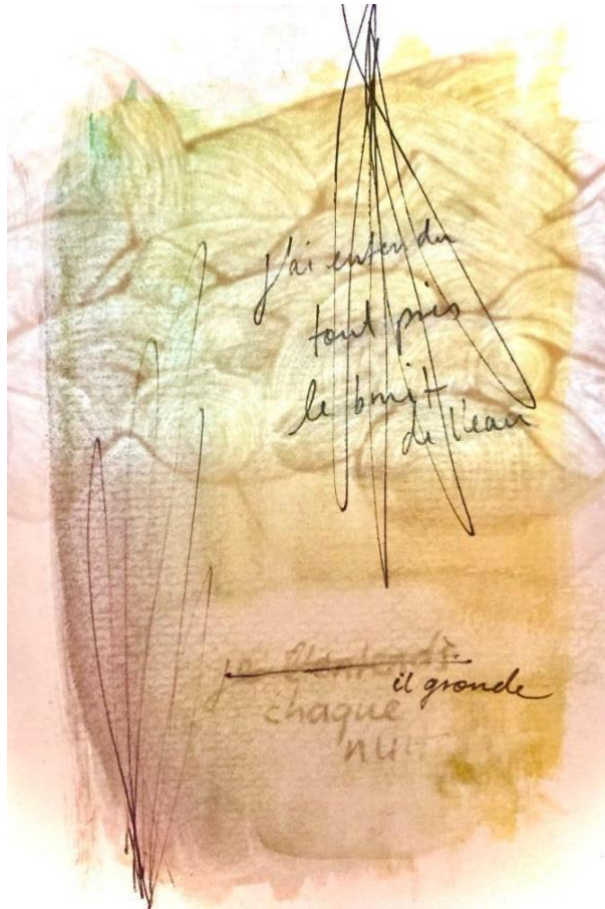 J'ai entendu
tout près
le bruit
de l'eau
je l'entends
il gronde
chaque
nuit